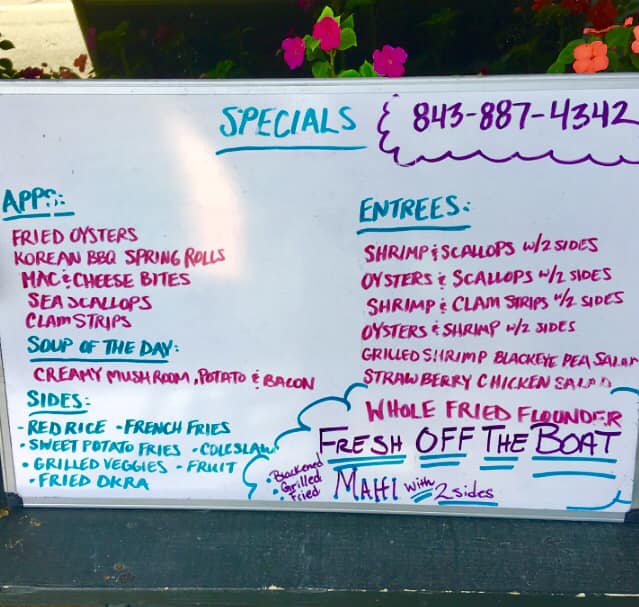 SPECIALS
843-887-4342
APPS:
FRIED OYSTERS
KOREAN BBQ SPRING ROLLS
MAC & CHEESE BITES
SEA SCALLOPS
CLAM STRIPS
SOUP OF THE DAY:
CREAMY MUSHROOM, POTATO & BACON
SIDES:
- RED RICE - FRENCH FRIES
- SWEET POTATO FRIES - COLESLAW
- GRILLED VEGGIES - FRUIT
- FRIED OKRA
ENTREES:
SHRIMP & SCALLOPS W/2 SIDES
OYSTERS & SCALLOPS W/2 SIDES
SHRIMP & CLAM STRIPS W/2 SIDES
OYSTERS & SHRIMP W/2 SIDES
GRILLED SHRIMP BLACKEYE PEA SALAD
STRAWBERRY CHICKEN SALAD
WHOLE FRIED FLOUNDER
FRESH OFF THE BOAT
• Blackened
• Grilled
• Fried
MAHI with 2 sides